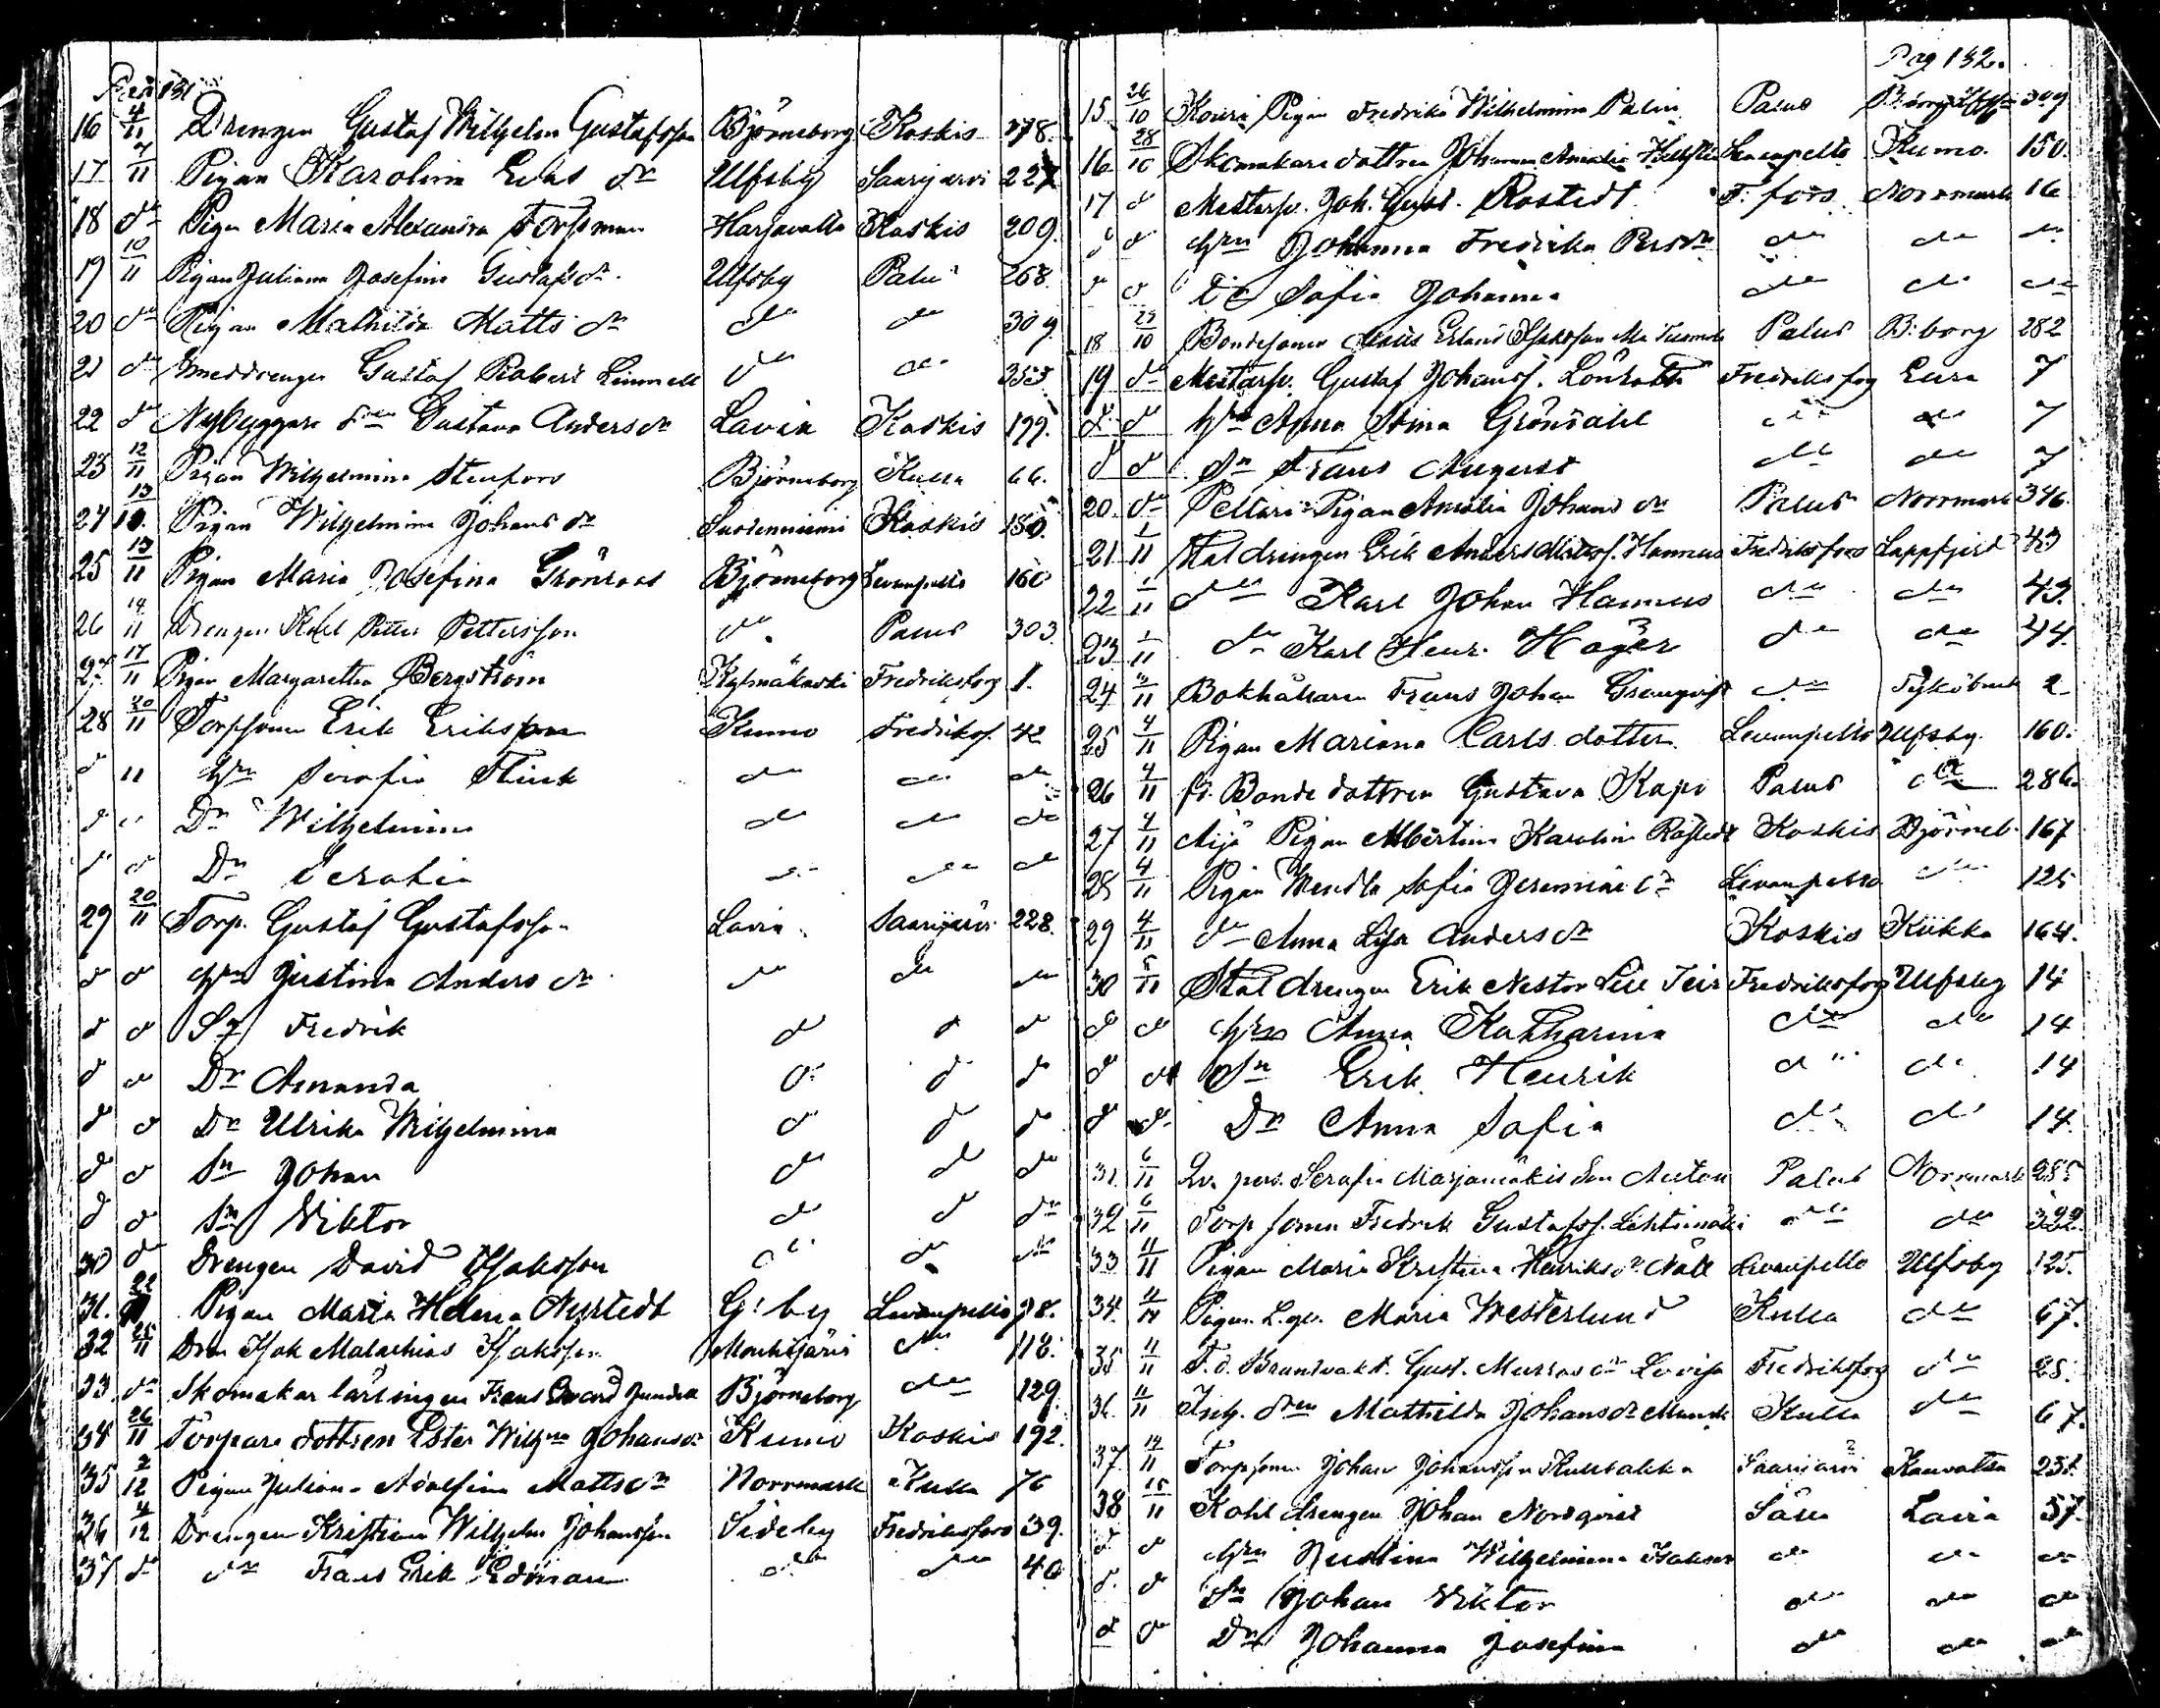 Pag 131
16 4/11 Drengen Gustaf Wilhelm Gustafsson Björneborg Koskis 178.
17 7/11 Pigan Karolina Eriks dr Ulfsby Saarijärvi 227
18 do Pigan Maria Alexandra Forsman Harjavalta Koskis 209.
19 10/11 Pigan Juliana Josefina Gustafs dr Ulfsby Palus 268
20 do Pigan Mathilda Matts dr do do 309
21 do Smeddrengen Gustaf Robert do do 353
22 do Nybyggare Gustava Anders dr Lavia Koskis 199.
23 12/11 Pigan Wilhelmina Stenfors Björneborg Kulla 66.
24 13 Pigan Wilhelmina Johans dr Suodenniemi Koskis 180.
25 13/11 Pigan Maria Josefina Grönroos Björneborg Levanpelto 160
26 14/11 Drengen Karl Petter Pettersson do Palus 303.
27. 17/11 Pigan Margaretha Bergström Kylmäkoski Fredriksforg 1.
28 20/11 Torpsonen Erik Eriksson Kumo Fredriksf. 42
d 11 Hn Serafia Flink do do do
d " Dr Wilhelmina do do do
d d Dr Serafia do do do
29 20/11 Torp. Gustaf Gustafsson Lavia Saarijärvi 228.
d d Hn Justina Anders dr do do do
d d Sn Fredrik d d d
d d Dr Amanda d d d
d d Dr Ulrika Wilhelmina d d d
d d Sn Johan d d d
d d Sn Viktor d d d
30 d Drengen David Isaksson d d d
31. 22 Pigan Maria Helena Nystedt G: by Levanpelto 98.
32 25/11 Drn Isak Malachias Isaksson Mouhijärvi do 118.
33. do Skomakar lärlingen Frans Edvard Björneborg do 129.
34 26/11 Torpare dottren Ester Wilhna Johans dr Kumo Koskis 192.
35 2/12 Pigan Juliana Adolfina Matts dr Norrmark Kulla 76
36 4/12 Drengen Kristian Wilhelm Johansson Sideby Fredriksfors 39.
37 do do Frans Erik Edman do do 40
Pag 132.
15 26/10 Pigan Fredrika Wilhelmina Palin Palus 309
16 28/10 Skomakare dottren Johanna Amalia Levanpelto Kumo. 150.
17 d Mästarsv. Joh. Gust. Rostedt F. fors. Norrmark 16
d d Hn Johanna Fredrika do do do
d d Dr Sofia Johanna do do do
18 29/10 Bondesonen Erland Isaksson Palus B:borg 282
19 do Mästarsv. Gustaf Johansf. Lönroth Fredriksfog Eura 7
d d Hn Anna Stina Gröndahl do do 7
d d Sn Frans August do do 7
20. do Peltari Pigan Amalia Johans dr Palus Norrmark 346.
21 1/11 Staldrengen Erik Anders Hannus Fredriksfors Lappfjerd 43
22 1/11 do Karl Johan Hannus do do 43.
23 1/11 do Karl Henr. Hager do do 44.
24 2/11 Bokhållaren Frans Johan Granqvist do Tyköbruk 2
25 4/11 Pigan Mariana Carls dotter Levanpelto Ulfsby. 160.
26 4/11 fd. Bonde dottren Gustava Kapi Palus do 286.
27 4/11 Äijä Pigan Albertina Karolina Koskis Björneb. 167
28 4/11 Pigan Wendla Sofia Jeremiae dr Levanpelto do 125
29 4/11 do Anna Lisa Anders dr Koskis Kiikka 164.
30 5/11 Stal drengen Erik Nestor Fredriksfog Ulfsby 14
d d Hn Anna Katharina do do 14
d d Sn Erik Henrik do do 14
d d Dr Anna Sofia do do 14.
31. 6/11 Serafia Marjamäki Palus Norrmark 285
32 6/11 Torp sonen Fredrik Gustafsf. Lehtimäki do do 322.
33 11/11 Pigan Maria Kristina Henriks dr Levanpelto Ulfsby 125.
34. 11/11 Pigan Maria Westerlund Kulla do 67.
35 11/11 F. d. Brandvakt. Gust. Lovisa Fredriksfog do 25.
36. 11/11 Mathilda Johans dr Munck Kulla do 67.
37. 14/11 Torpsonen Johan Johansson Saarijärvi Kauvatsa
38 15/11 Kohl drengen Johan Nordqvist Lavia 57.
d d Hn Justina Wilhelmina do do do
d. d Sn Johan Viktor do do do
d d Dr Johanna Josefina do do do